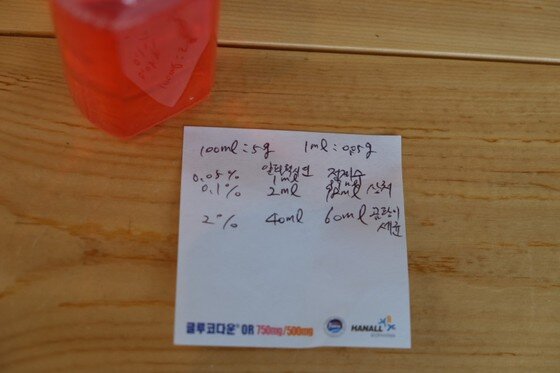 100ml = 5g 1ml = 0.05g
0.05% 1ml 정제수
0.1% 2ml 98ml 상처
2% 40ml 60ml 곰팡이
세균
글루코다운® OR 750mg/500mg HANALL